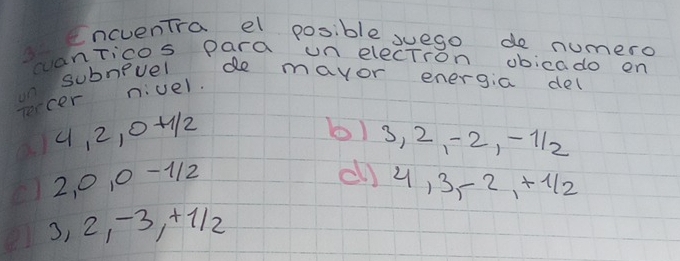 3- Encuentra el posible juego de numero
cuanticos para un electron ubicado en
un subnevel de mayor energia del
tercer nivel.
a) 4,2,0+1/2
b) 3,2,-2,-1/2
c) 2,0,0-1/2
d) 4,3,-2,+1/2
e) 3,2,-3,+1/2